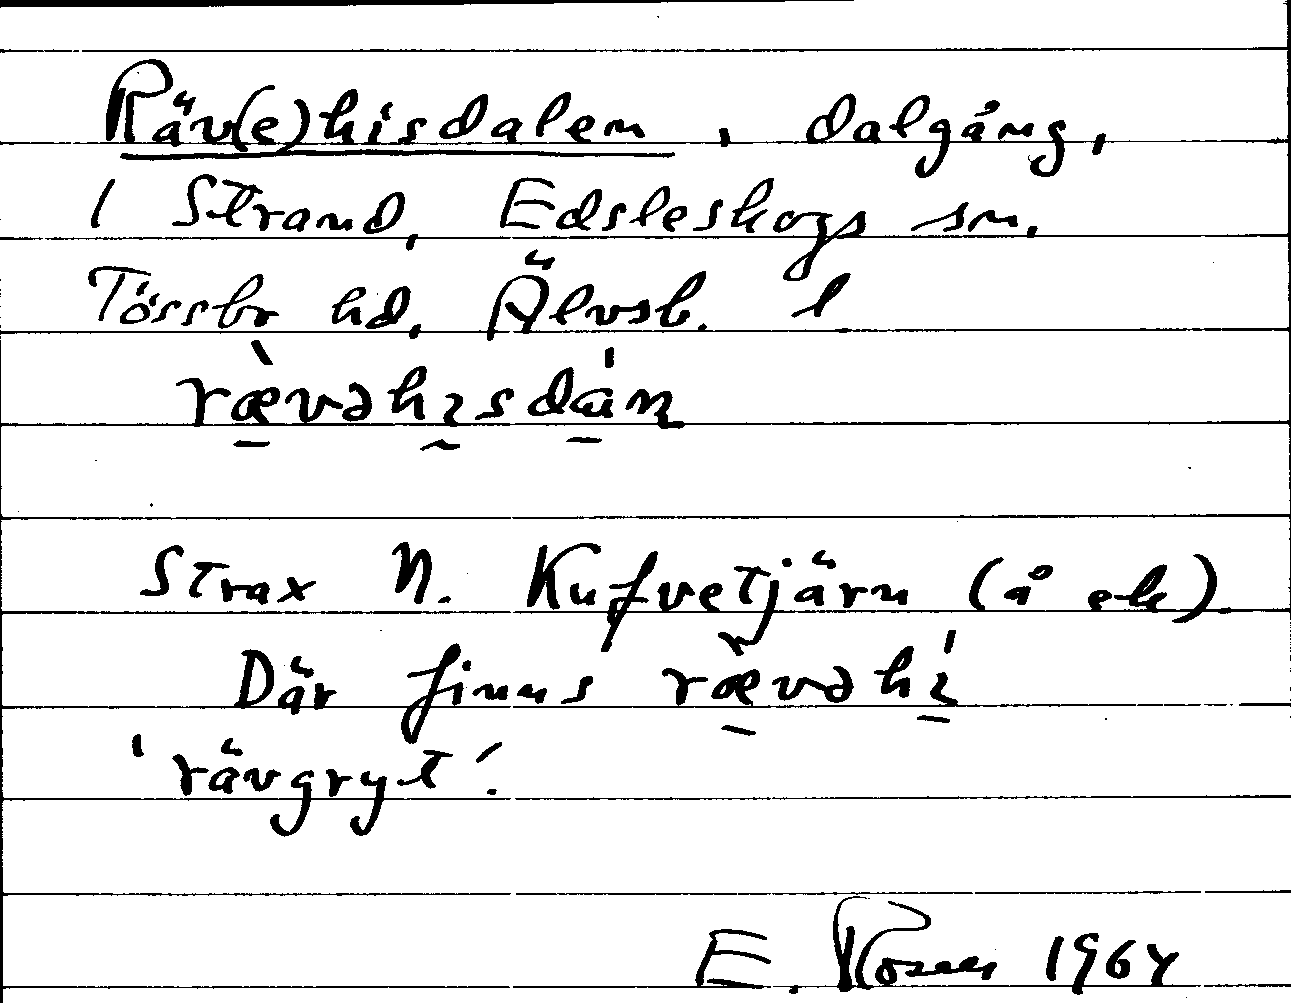 Räv(e)hisdalen, dalgång,
i Strand, Edsleskogs sn.
Tössbr hd, Älvsb. l
rævəhisdán
Strax N. Kufvetjärn (å ek).
Där finns rævəhí
'rävgryt'.
E. Rosen 1964